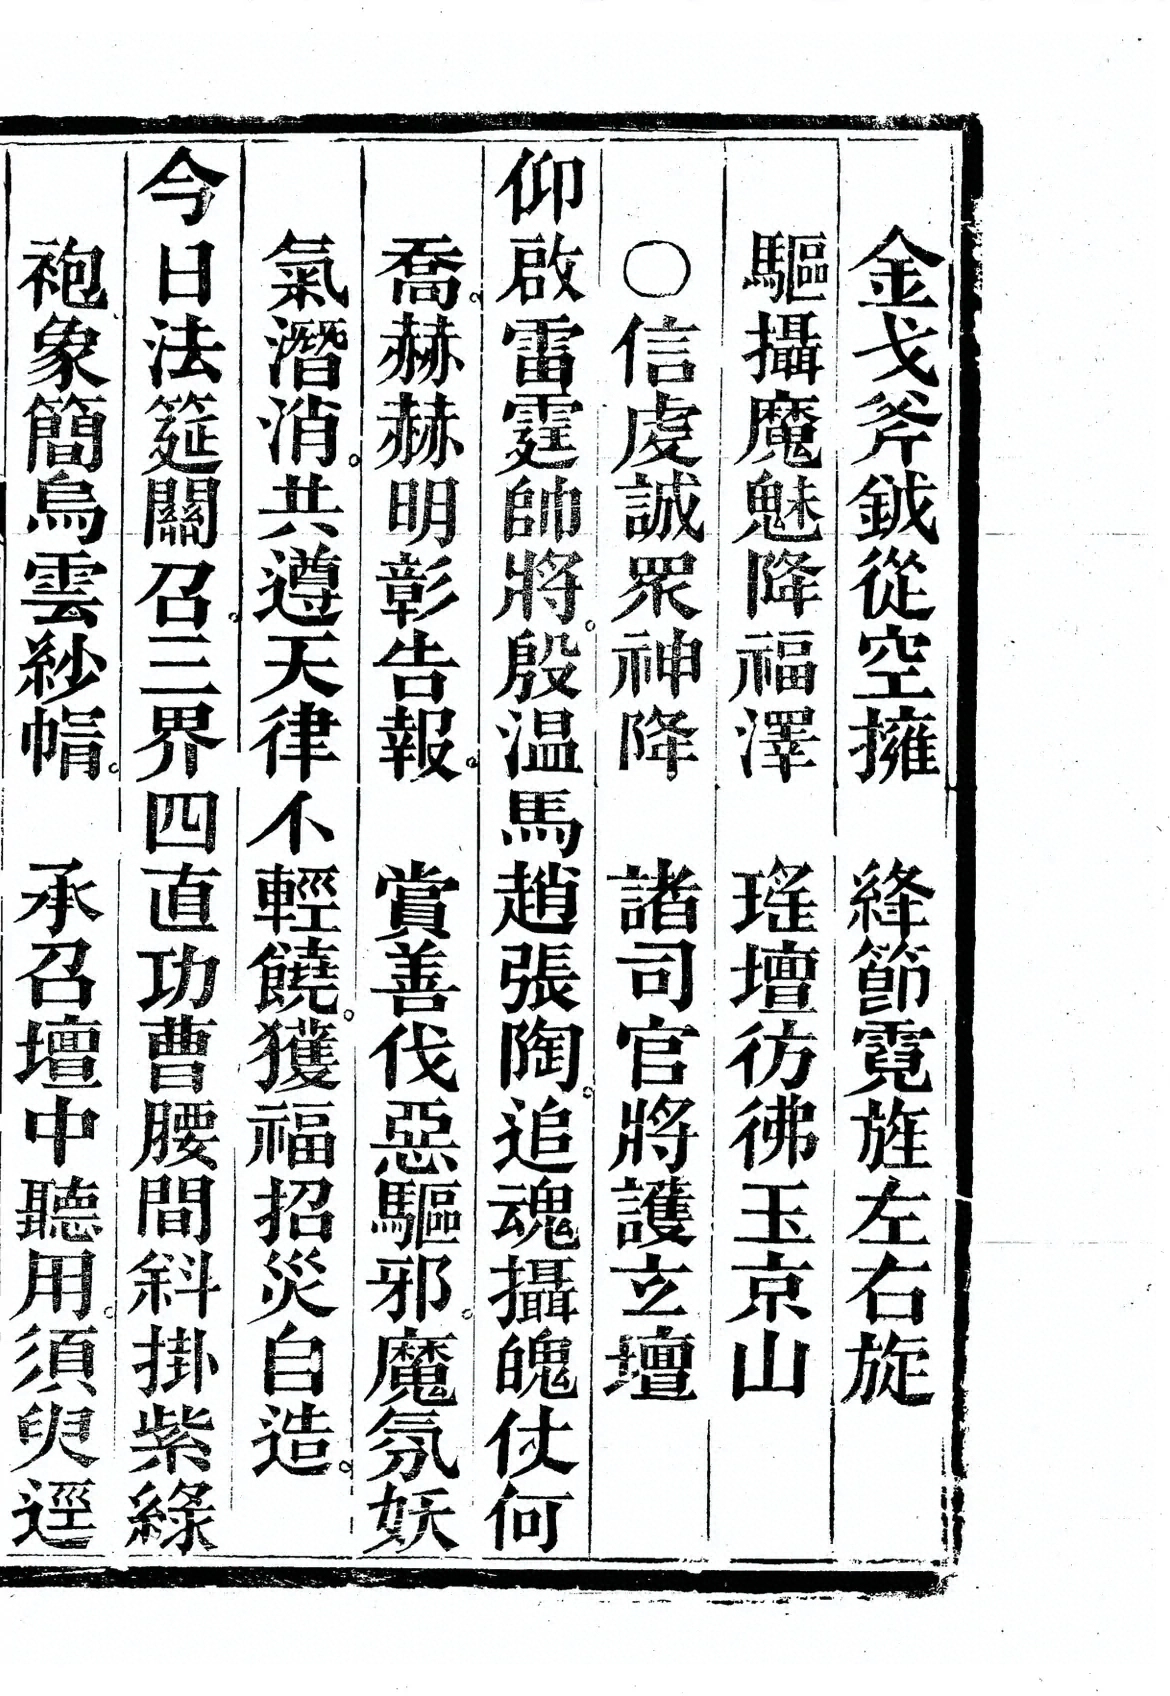 金戈斧鉞從空擁　絳節霓旌左右旋
驅攝魔魅降福澤　瑤壇彷彿玉京山
○信虔誠眾神降　諸司官將護立壇
仰啟雷霆帥將。殷温馬趙張陶。追魂攝魄仗何
喬。赫赫明彰告報。　賞善伐惡驅邪。魔氛妖
氣潛消。共遵天律不輕饒。獲福招災自造。
今日法筵關召。三界四直功曹腰間斜掛紫綠
袍象簡烏雲紗帽。　承召壇中聽用。須臾逕